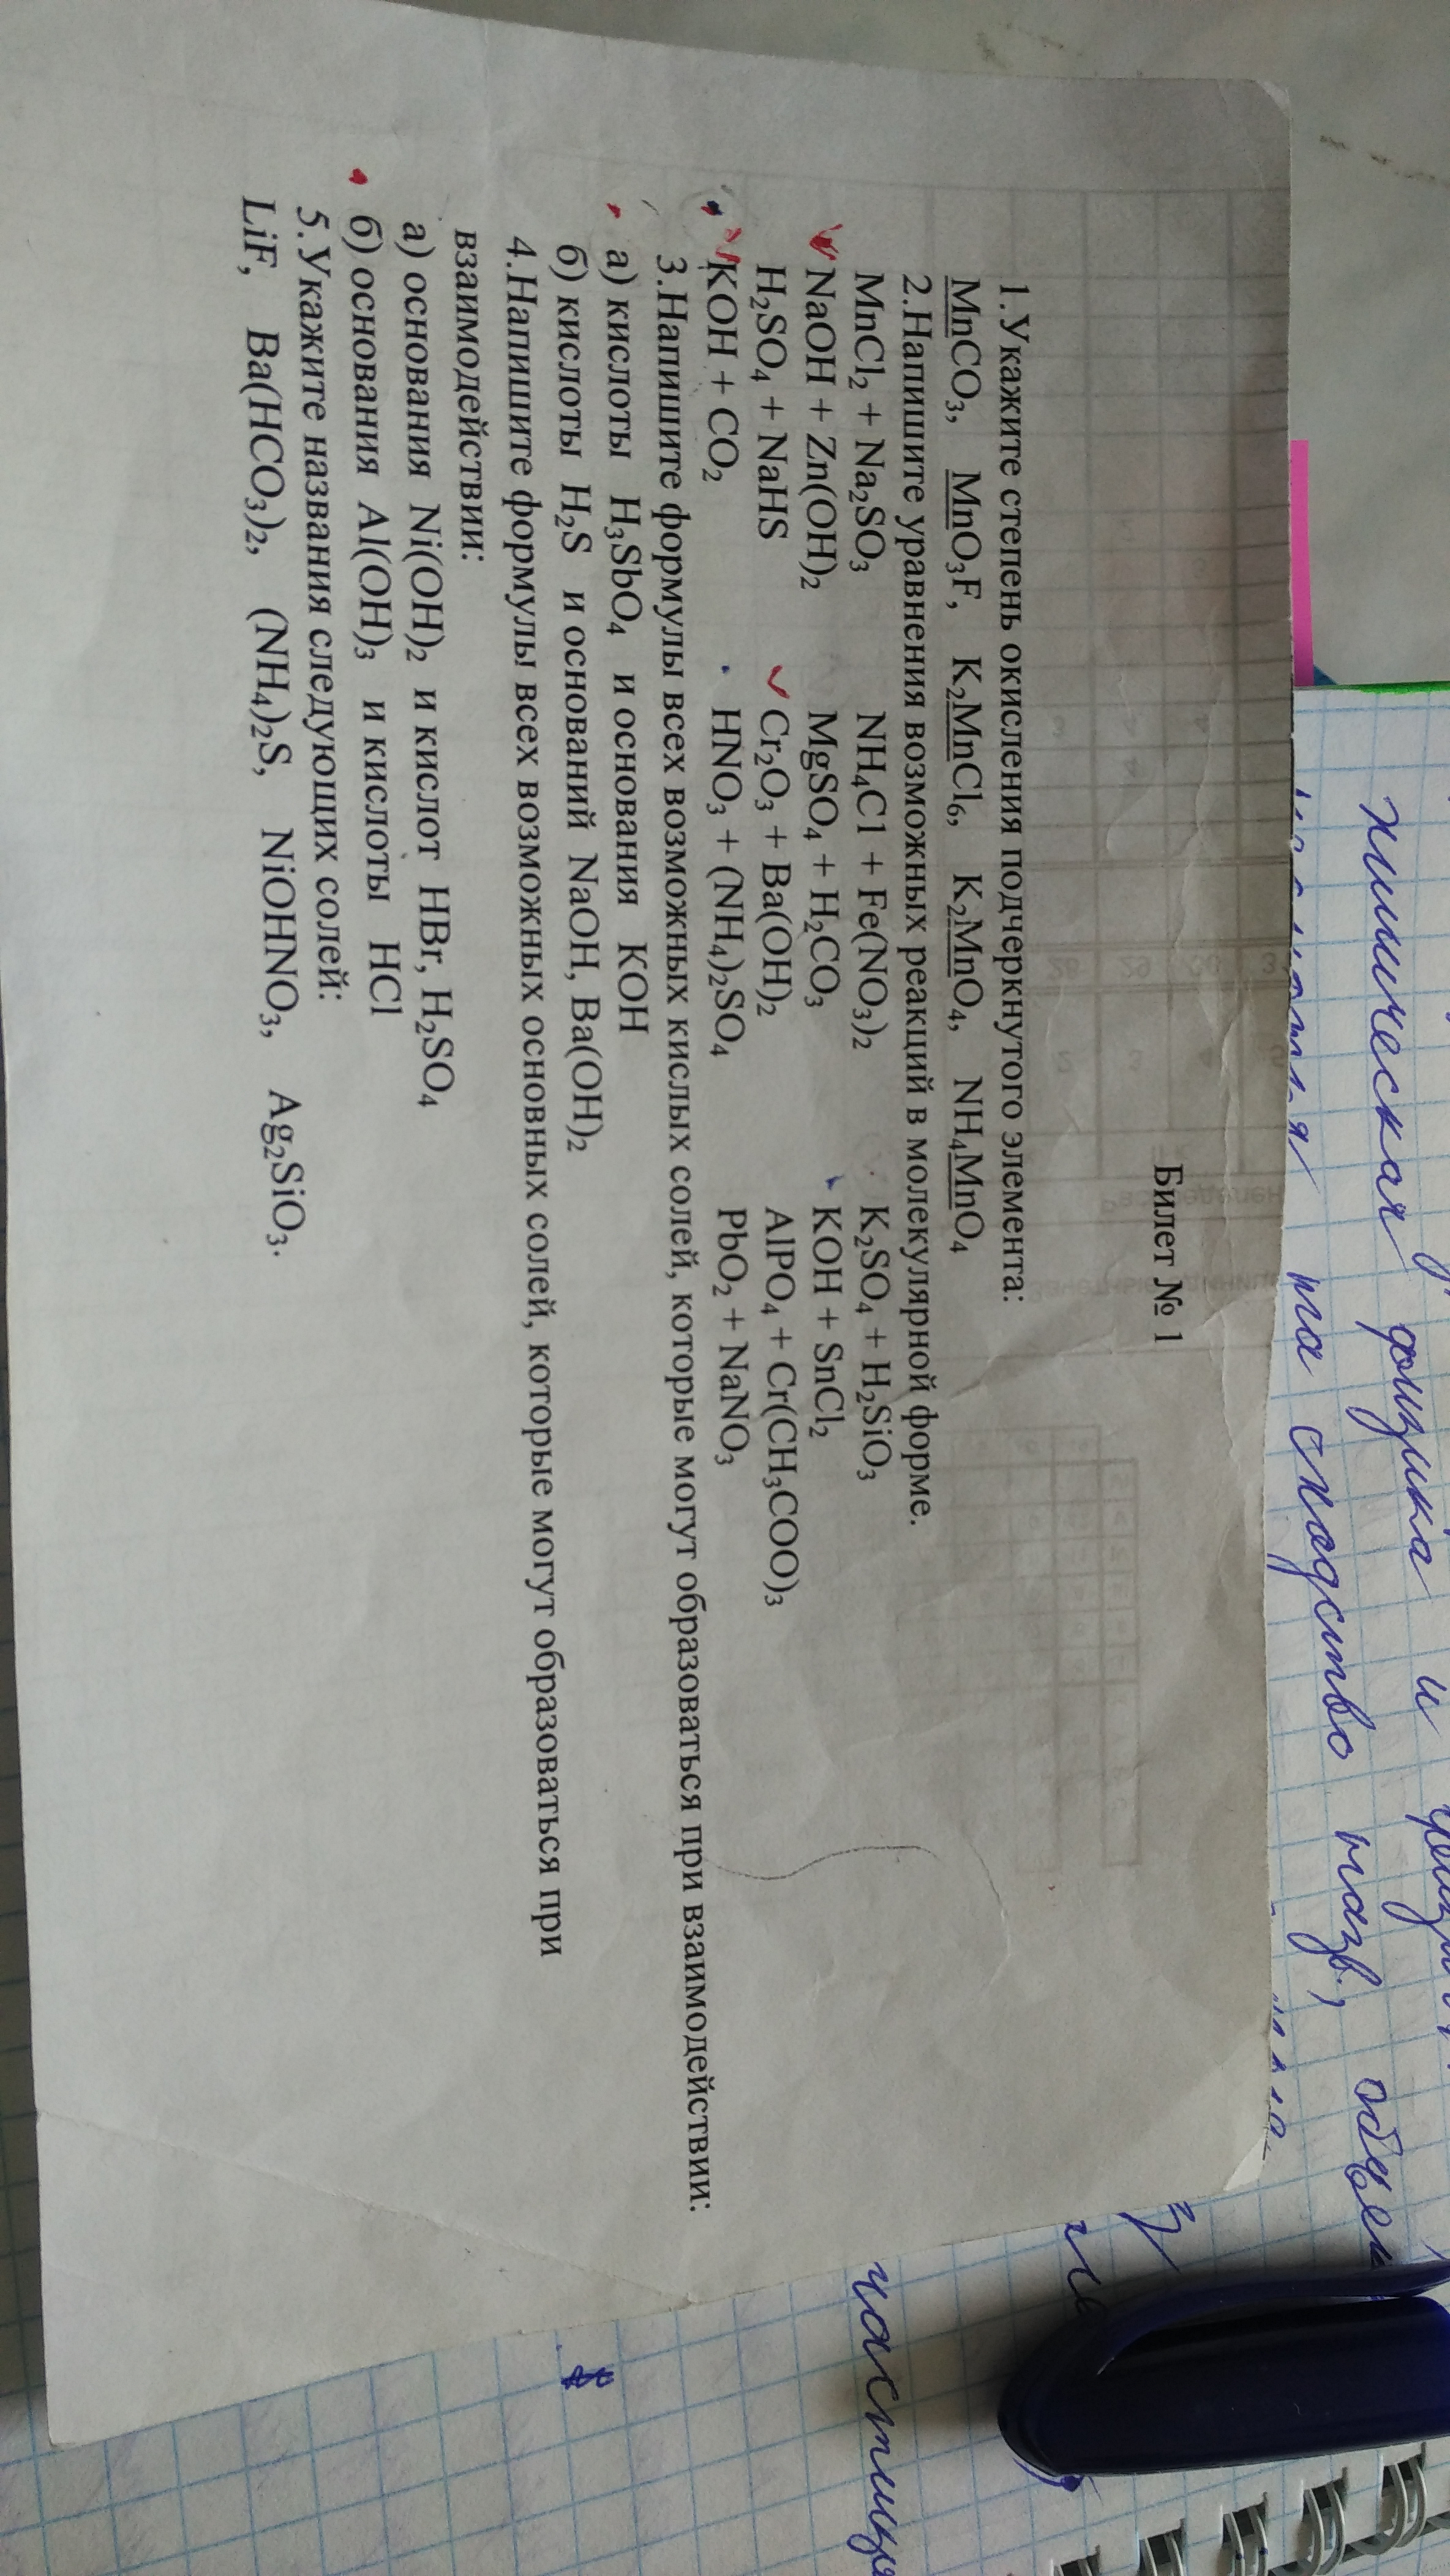 Билет № 1
1.Укажите степень окисления подчеркнутого элемента:
MnCO₃, MnO₃F, K₂MnCl₆, K₂MnO₄, NH₄MnO₄
2.Напишите уравнения возможных реакций в молекулярной форме.
MnCl₂ + Na₂SO₃ NH₄Cl + Fe(NO₃)₂ K₂SO₄ + H₂SiO₃
NaOH + Zn(OH)₂ MgSO₄ + H₂CO₃ KOH + SnCl₂
H₂SO₄ + NaHS Cr₂O₃ + Ba(OH)₂ AlPO₄ + Cr(CH₃COO)₃
KOH + CO₂ HNO₃ + (NH₄)₂SO₄ PbO₂ + NaNO₃
3.Напишите формулы всех возможных кислых солей, которые могут образоваться при взаимодействии:
а) кислоты H₃SbO₄ и основания KOH
б) кислоты H₂S и оснований NaOH, Ba(OH)₂
4.Напишите формулы всех возможных основных солей, которые могут образоваться при
взаимодействии:
а) основания Ni(OH)₂ и кислот HBr, H₂SO₄
б) основания Al(OH)₃ и кислоты HCl
5.Укажите названия следующих солей:
LiF, Ba(HCO₃)₂, (NH₄)₂S, NiOHNO₃, Ag₂SiO₃.
химическая физика и
на сходство назв,
частиц